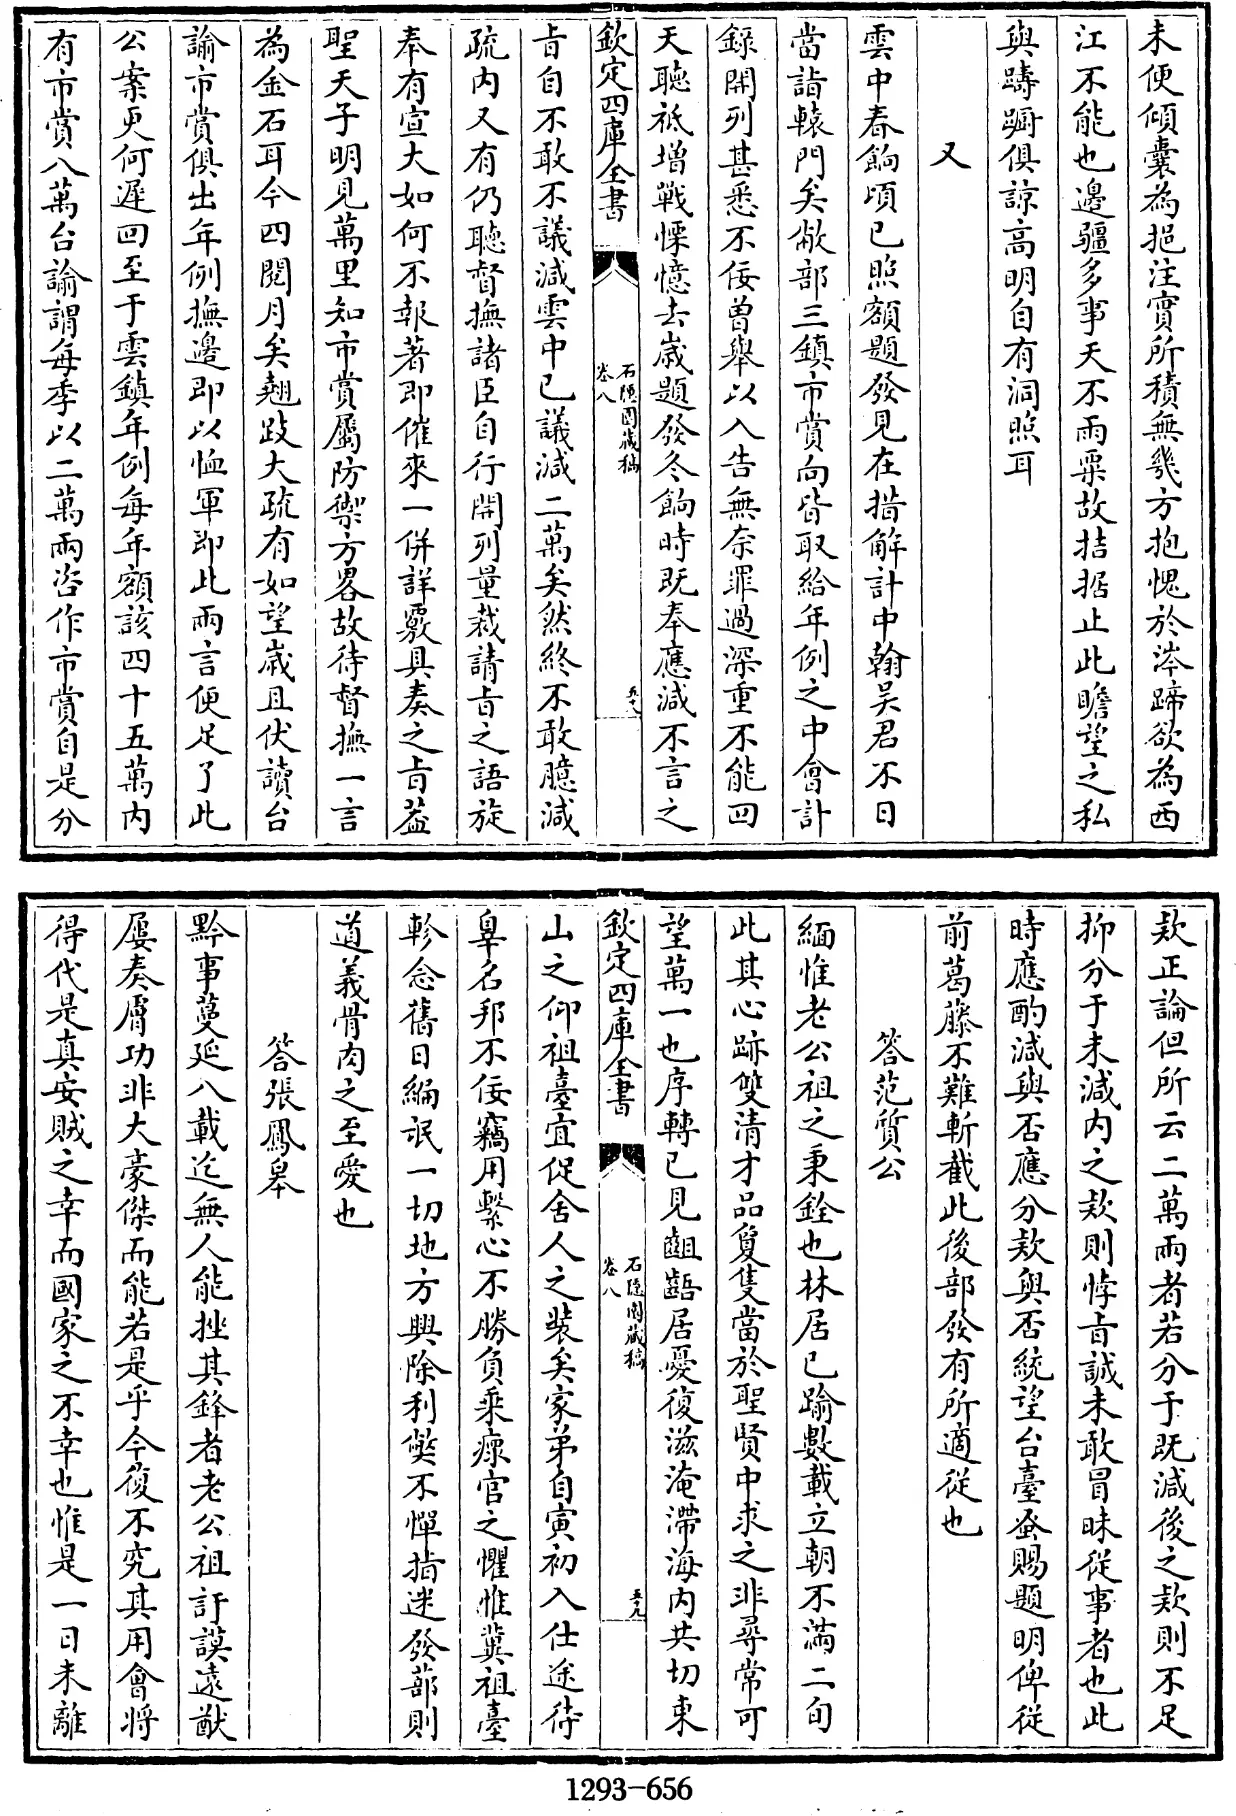 未便傾囊為挹注實所積無幾方抱愧於涔蹄欲為西
江不能也邊疆多事天不雨粟故拮据止此瞻望之私
與躊躕俱諒高明自有洞照耳
又
雲中春餉頃已照額題發見在措解計中翰吳君不日
當詣轅門矣敝部三鎮市賞向皆取給年例之中會計
錄開列甚悉不佞曽舉以入告無奈罪過深重不能回
天聽祗增戰慄憶去嵗題發冬餉時既奉應減不言之
欽定四庫全書
石隱園藏稿
卷八
五十八
㫖自不敢不議減雲中已議減二萬矣然終不敢臆減
疏内又有仍聽督撫諸臣自行開列量裁請㫖之語旋
奉有宣大如何不報著即催來一併詳覈具奏之㫖葢
聖天子明見萬里知市賞屬防禦方畧故待督撫一言
為金石耳今四閱月矣翹跂大疏有如望嵗且伏讀台
諭市賞俱出年例撫邊即以恤軍即此兩言便足了此
公案更何遲回至于雲鎮年例每年額該四十五萬内
有市賞八萬台諭謂每季以二萬兩咨作市賞自是分
款正論但所云二萬兩者若分于既減後之款則不足
抑分于未減内之款則悖㫖誠未敢冒昧從事者也此
時應酌減與否應分款與否統望台臺蚤賜題明俾從
前葛藤不難斬截此後部發有所適從也
答范質公
緬惟老公祖之秉銓也林居已踰數載立朝不滿二旬
此其心跡雙清才品夐隻當於聖賢中求之非尋常可
望萬一也序轉已見齟齬居憂復滋淹滯海内共切東
欽定四庫全書
石隱園藏稿
卷八
五十九
山之仰祖臺宜促舍人之裝矣家弟自寅初入仕途待
辠名邦不佞竊用繫心不勝負乘瘝官之懼惟冀祖臺
軫念舊日編氓一切地方興除利獘不憚指迷發蔀則
道義骨肉之至愛也
答張鳳皋
黔事蔓延八載迄無人能挫其鋒者老公祖訏謨遠猷
屢奏膚功非大豪傑而能若是乎今復不究其用會將
得代是真安賊之幸而國家之不幸也惟是一日未離
1293-656